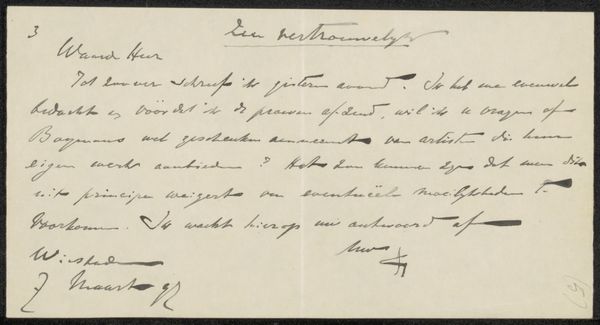 3
Zeer vertrouwelijk
Waarde Heer
Tot zoover schreef ik gisteren avond. Ik heb me evenwel
bedacht en vóórdat ik de proeven afzend, wil ik u vragen of
Boymans wel geschenken aanneemt van artisten die hun
eigen werk aanbieden? Het zou kunnen zijn dat men dit
uit principe weigert om eventueële moeilijkheden t.
voorkomen. Ik wacht hierop uw antwoord af
Uw
Wiesbaden
7 Maart 97
(5)